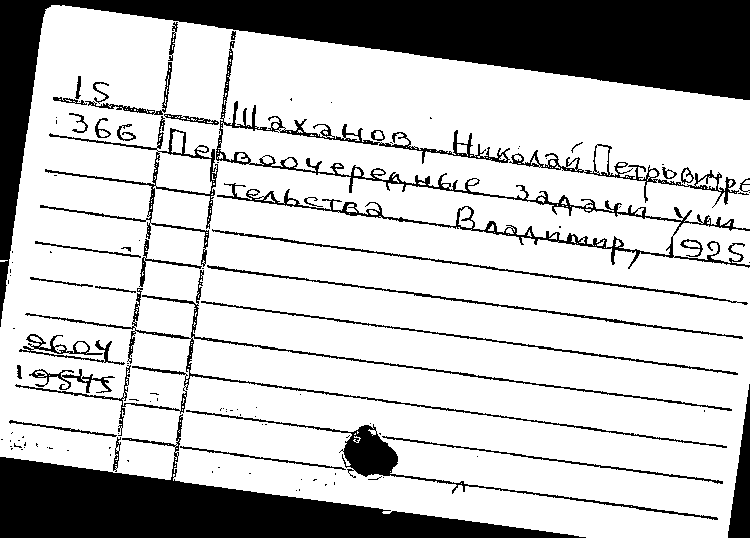 15
366
Шаханов, Николай Петрович, ре
Первоочередные задачи учи
тельства. Владимир, 1925.
2604
19545